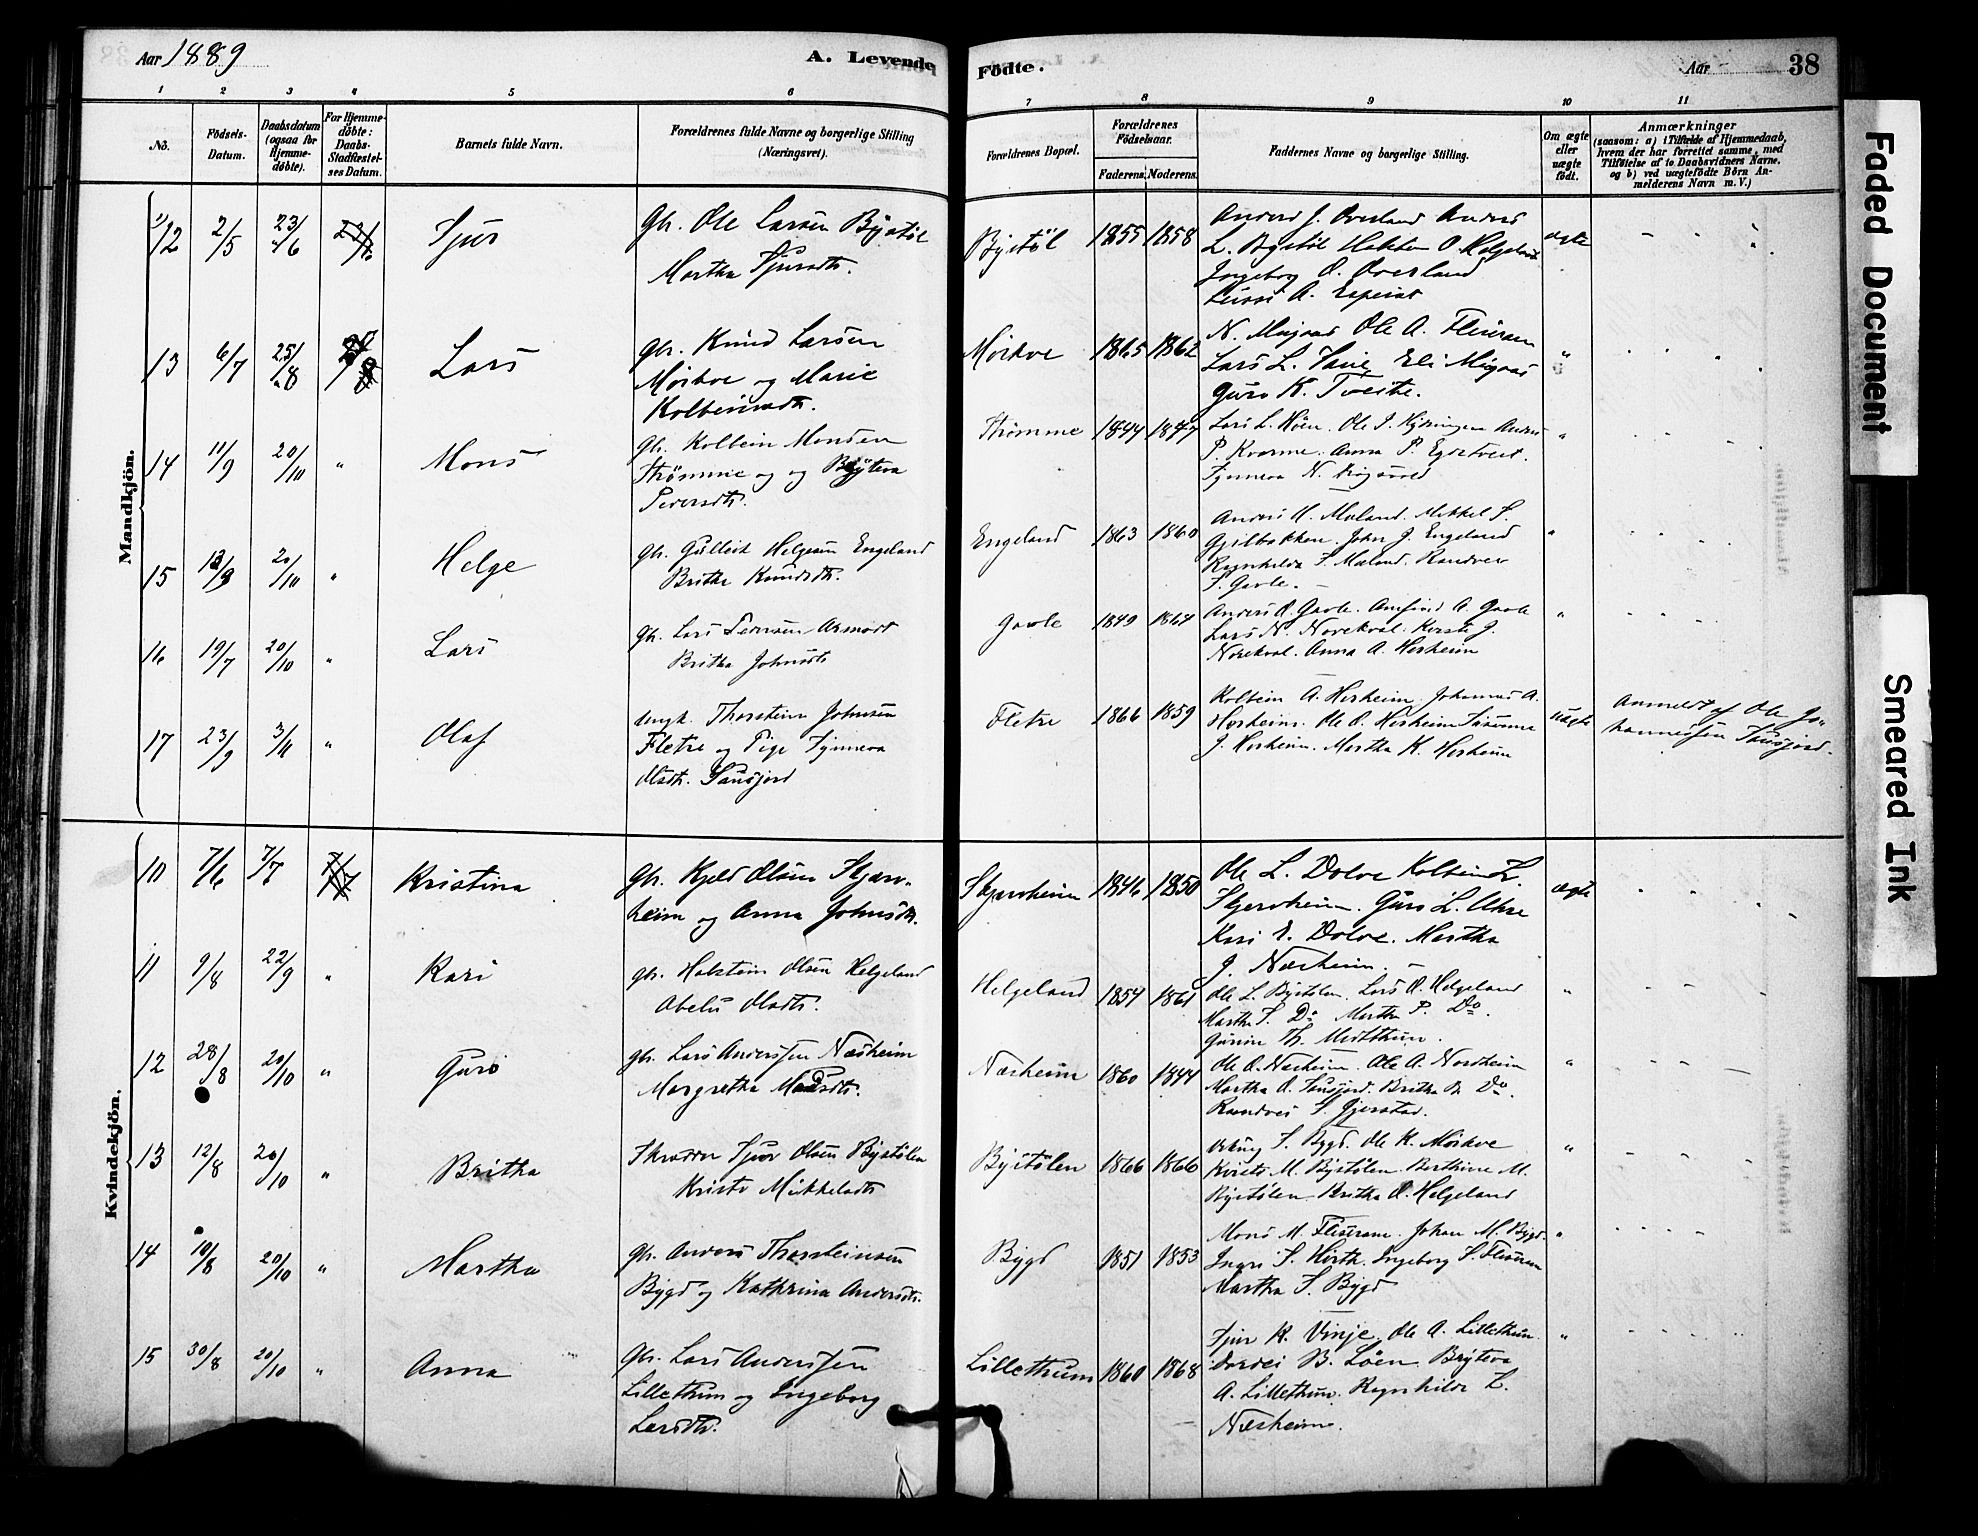 Aar 1889
A. Levende
Födte.
Aar
38
1 2 3 4 5 6 7 8 9 10 11
No.
Födsels-
Datum.
Daabsdatum
(ogsaa for
Hjemme-
döbte).
For Hjemme-
döbte:
Daabs-
Stadfæstel-
ses Datum.
Barnets fulde Navn.
Forældrenes fulde Navne og borgerlige Stilling
(Næringsvei).
Forældrenes Bopæl.
Forældrenes
Födselsaar.
Faderens. Moderens.
Faddernes Navne og borgerlige Stilling.
Om ægte
eller
uægte
födt.
Anmærkninger
(saasom: a) i Tilfælde af Hjemmedaab,
hvem der har forrettet samme, med
Tilföielse af to Daabsvidners Navne,
og b) ved uægtefödte Börn An-
melderens Navn m. V.)
Mandkjön.
12 2/5 23/6 Sjur
Gb. Ole Larsen Bystöl
Martha Sjursdt.
Bystöl 1855 1858
Anders J. Overland Anders
L. Bystöl O. Helgeland
Ingeborg O. Overland
A.
ægte
13 6/7 25/8 Lars
Gb. Knud Larsen
Mörkve og Marie
Kolbeinsdt.
Mörkve 1865 1862
Ole A. Flisram
Lars L. Eli
Guro K. Tveite.
"
14 11/9 20/10 " Mons
Gb. Kolbein Monsen
Strömme og og Brÿteva
Pedersdt.
Strömme 1844 1847
Lars L. Höen. Ole
P. Kvarme. Anna P. Egdetveit.
Synneva N.
"
15 12/9 20/10 " Helge
Gb. Gulleik Helgesen Engeland
Britha Knudsdt.
Engeland 1863 1860
Anders M. Mæland. Mikkel S.
Gjelbakken. John J. Engeland
Ragnhilda S. Mæland. Randvei
S. Gavle.
"
16 19/7 20/10 " Lars
Gb. Lars Pedersen Asmort
Britha Johnsdt
Gavle 1849 1864
Anders O. Gavle. Arnfind A. Gavle
Lars N. Norekval. Kirsti J.
Norekval. Anna A. Herheim
"
17 23/9 3/11 " Olaf
Ungk. Thorstein Johnsen
Fletre og Pige Synneva
Olsdt. Sausjord
Fletre 1866 1859
Kolbein A. Herheim. Johannes A.
Herheim. Ole O. Herheim Susanna
J. Herheim. Martha K. Herheim
uægte
Anmeldt af Ole Jo-
hannessen Sausjord.
Kvindekjön.
10 7/6 7/7 Kristina
Gb. Kjeld Olsen Skjerv-
heim og Anna Johnsdt.
Skjerveheim 1846 1850
Ole L. Dolve Kolbein L.
Skjerveheim. Guro L. Ukse
Kari E. Dolve. Martha
J. Næsheim.
ægte
11 9/8 22/9 " Kari
gb. Holstein Olsen Helgeland
Abelu Olsdt.
Helgeland 1854 1861
Ole L. Bystölen. Lars O. Helgeland
Martha S. Do Martha P. Do.
Th. Midtthun.
"
12 28/8 20/10 " Guro
gb. Lars Anderssen Næsheim
Margretha Madsdt.
Næsheim 1860 1844
Ole O. Næsheim. Ole A. Nordheim
Martha O. Sausjord. Britha Do.
Randvei S. Gjerstad.
"
13 12/8 20/10 " Britha
Skræder Sjur Olsen Bystölen
Kristi Mikkelsdt
Bystölen 1866 1866
Viking S. Bygd. Ole K. Mörkve
Kristi M. Bystölen. Berthine M.
Bystölen. Britha O. Helgeland
"
14 10/8 20/10 " Martha
gb. Anders Thorsteinsen
Bygd og Kathrina Andersdt.
Bygd 1851 1853
Mons M. Flisram. Johan M. Bygd.
Ingri S. Hirth. Ingeborg S. Flisram
Martha S. Bygd
"
15 30/8 20/10 " Anna
Gb. Lars Anderssen
Lillethun og Ingeborg
Larsdt.
Lillethun 1860 1868
Sjur K. Vinje. Ole A. Lillethun.
B. Löen Brÿteva
A. Lillethun. Ragnhilda L.
Næsheim.
"
Faded Document
Smeared Ink